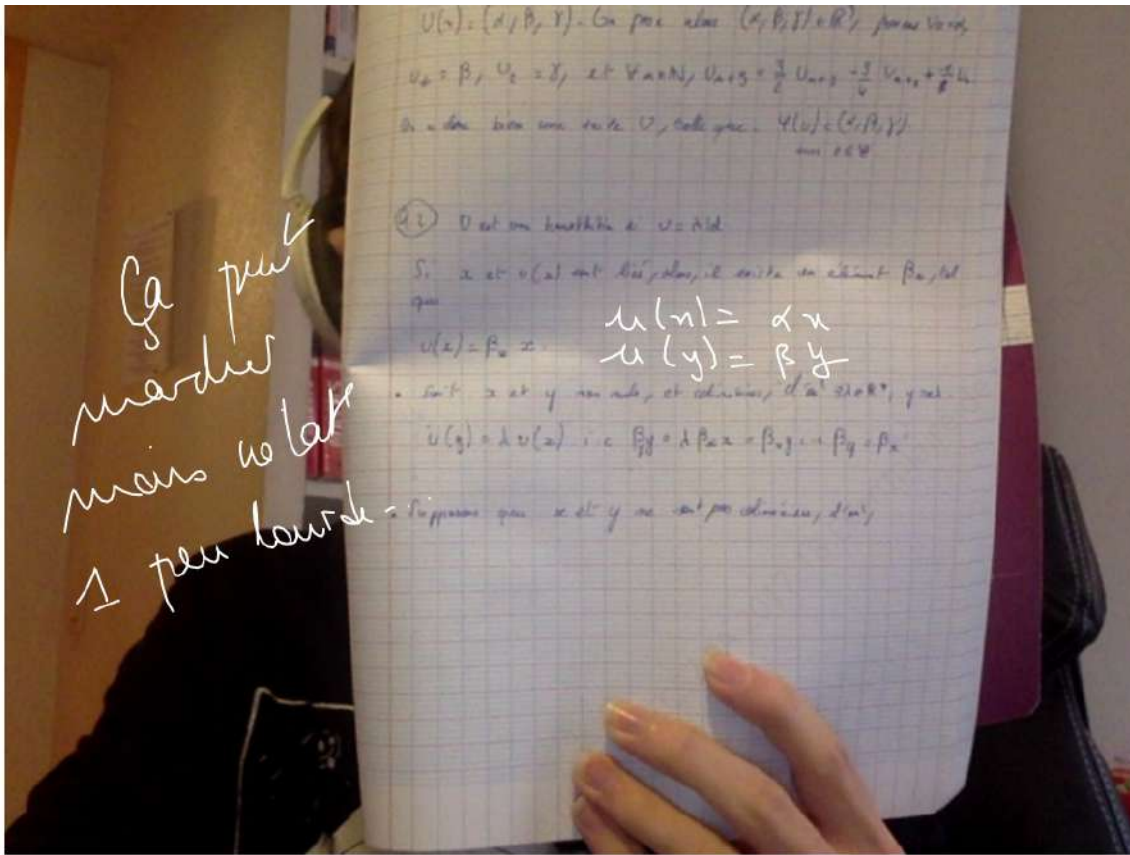 U(n) = (α, β, γ). On pose alors (α, β, γ) ∈ ℝ³, posons U₀ = α,
u₁ = β, U₂ = γ, et ∀n∈ℕ, U_{n+3} = 3/2 U_{n+2} - 3/4 U_{n+1} + 1/8 U_n
On a donc bien une suite U, telle que φ(u) = (α, β, γ)
U est une homothétie si u = λId
Si x et u(x) sont liés, alors, il existe un élément βx, tel
que
u(x) = βx x.
u(x) = αx
u(y) = βy
• Soit x et y non nuls, et colinéaires, d'où ∃λ∈ℝ*, y = λx
u(y) = λu(x) i.e βy y = λ βx x = βx y → βy = βx
• Supposons que x et y ne sont pas colinéaires, d'où,
Ça peut
marcher
mais notat°
1 peu lourde